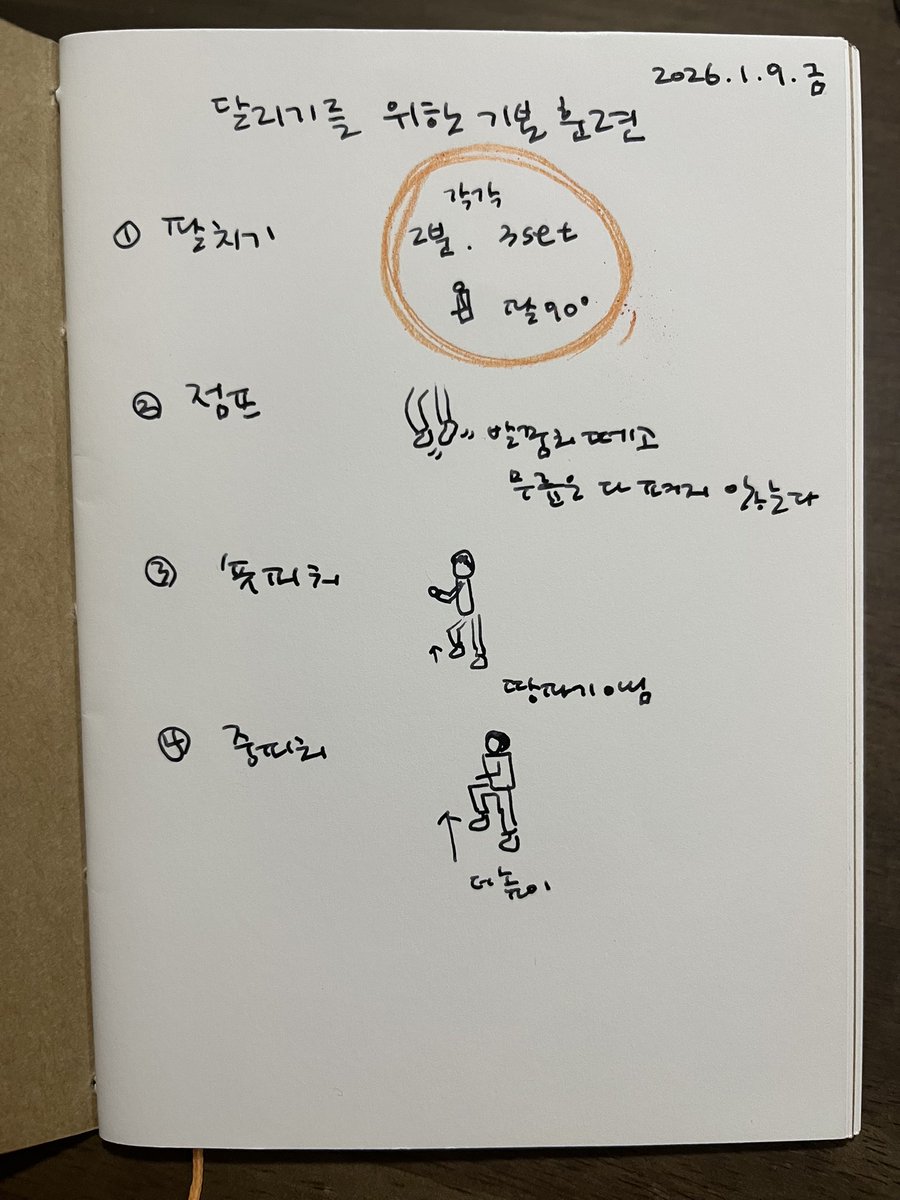 2026.1.9.금
달리기를 위한 기본 훈련
① 팔치기
각각
2분. 3set
팔 90°
② 점프
발꿈치 떼고
무릎은 다 펴지지 않는다
③ 풋피치
땅파기 이벰
④ 중피치
더 높이